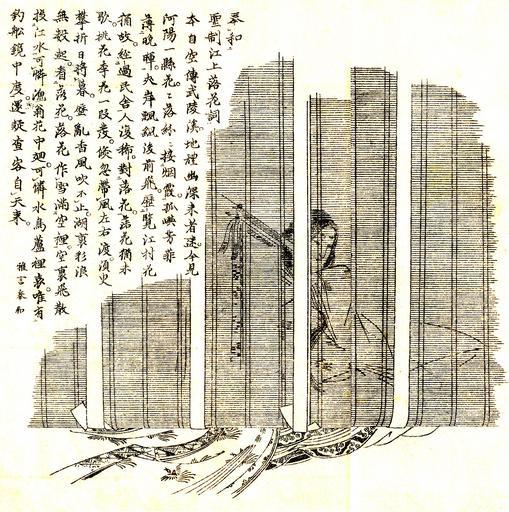 奉和
聖制江上落花詞
本自空傳武陵溪地裡幽深来者迷今見
河陽一縣花花落紛紛接烟霞孤嶼芳菲
薄晚暉夾岸飄颻後前飛歷覽江村花
猶故經過民舍人復稀對落花落花猶未
歇桃花李花一段倏忽帶風左右渡須臾
攀折日將暮歷亂香風吹不止湖裏彩浪
無數起看落花落花作雪滿空裡空裏飛散
投江水可憐漁翁花中廻可憐水鳥蘆裡哀唯有
釣船鏡中度還疑查客自天来
雜言奉和